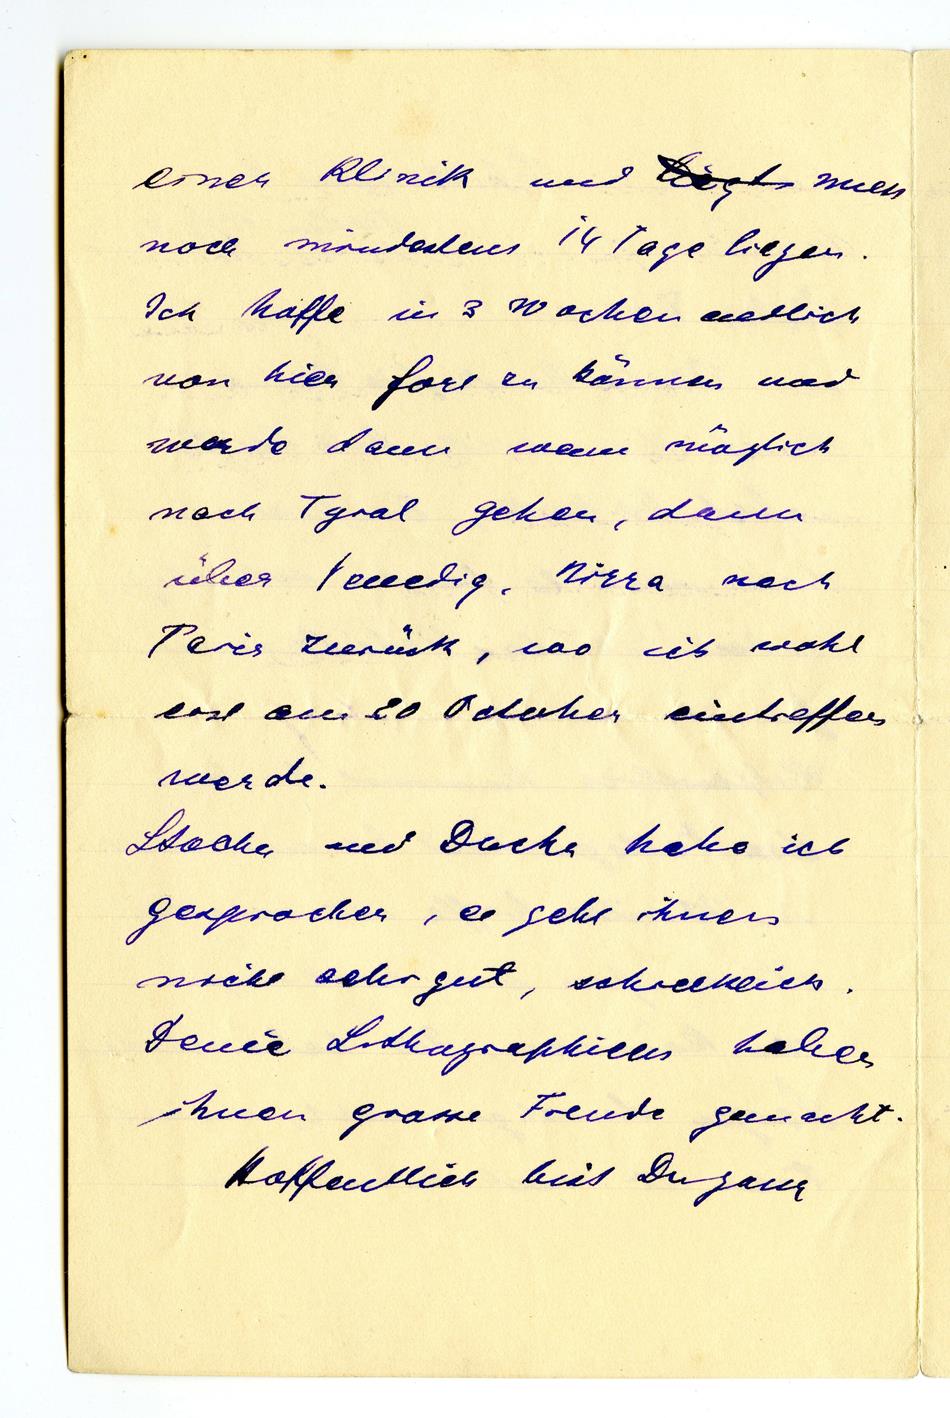 einer Klinik und liegt muss
noch mindestens 14 Tage liegen.
Ich hoffe in 3 Wochen endlich
von hier fort zu können und
werde dann wenn möglich
nach Tyrol gehen, dann
über Venedig, Nizza nach
Paris zurück, wo ich wohl
erst am 20 October eintreffen
werde.
und habe ich
gesprochen, es geht ihnen
nicht sehr gut, schrecklich.
Deine Lithographien haben
ihnen grosse Freude gemacht.
Hoffentlich bist Du ganz